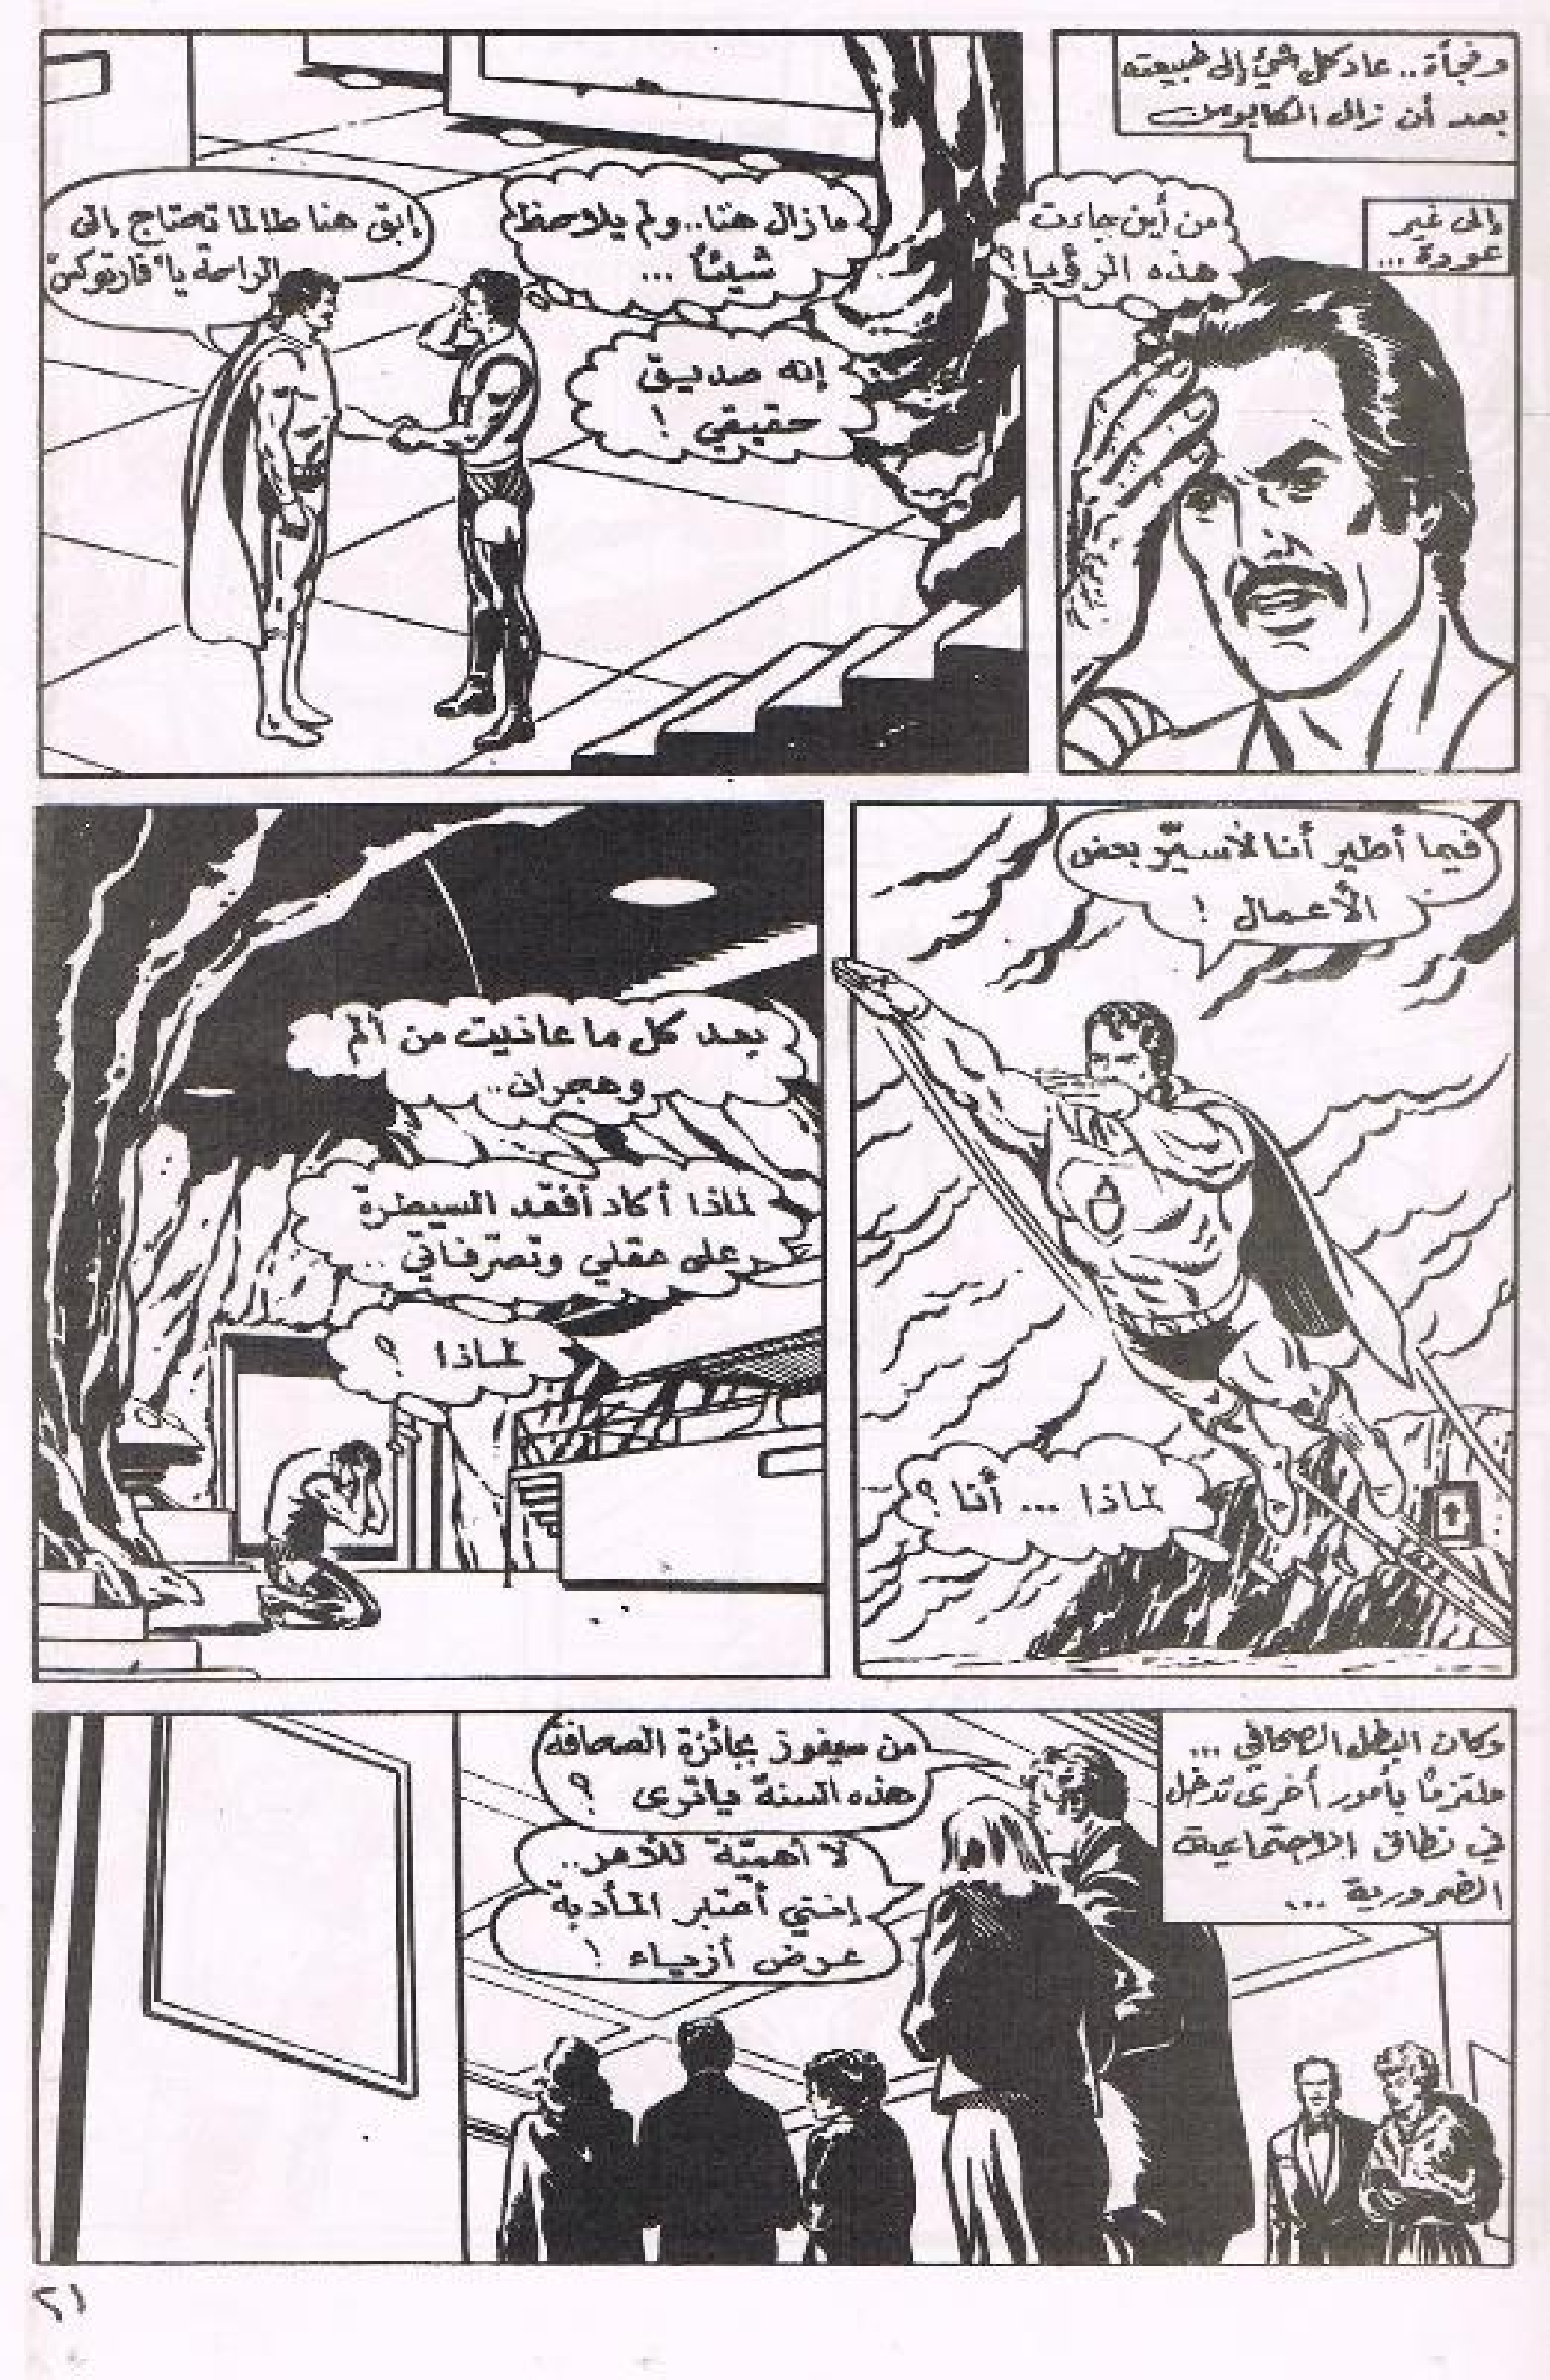 وفجأة.. عاد كل شيء إلى طبيعته
بعد أن زال الكابوس
وإلى غير
عودة ...
من أين جاءت
هذه الرؤيا؟
ما زال هنا.. ولم يلاحظ
شيئاً ...
إنه صديق
حقيقي !
إبق هنا طالما تحتاج إلى
الراحة يا "فارتوكس"
فيما أطير أنا لأسيّر بعض
الأعمال !
لماذا ... أنا ؟
بعد كل ما عانيت من ألم
وهجران..
لماذا أكاد أفقد السيطرة
على عقلي وتصرّفاتي ..
لماذا ؟
وكان البطل الصحافي ...
ملتزمًا بأمور أخرى تدخل
في نطاق الاجتماعية
الضرورية ...
من سيفوز بجائزة الصحافة
هذه السنة ياترى ؟
لا أهميّة للأمر..
إنني أعتبر المأدبة
عرض أزياء !
٢١